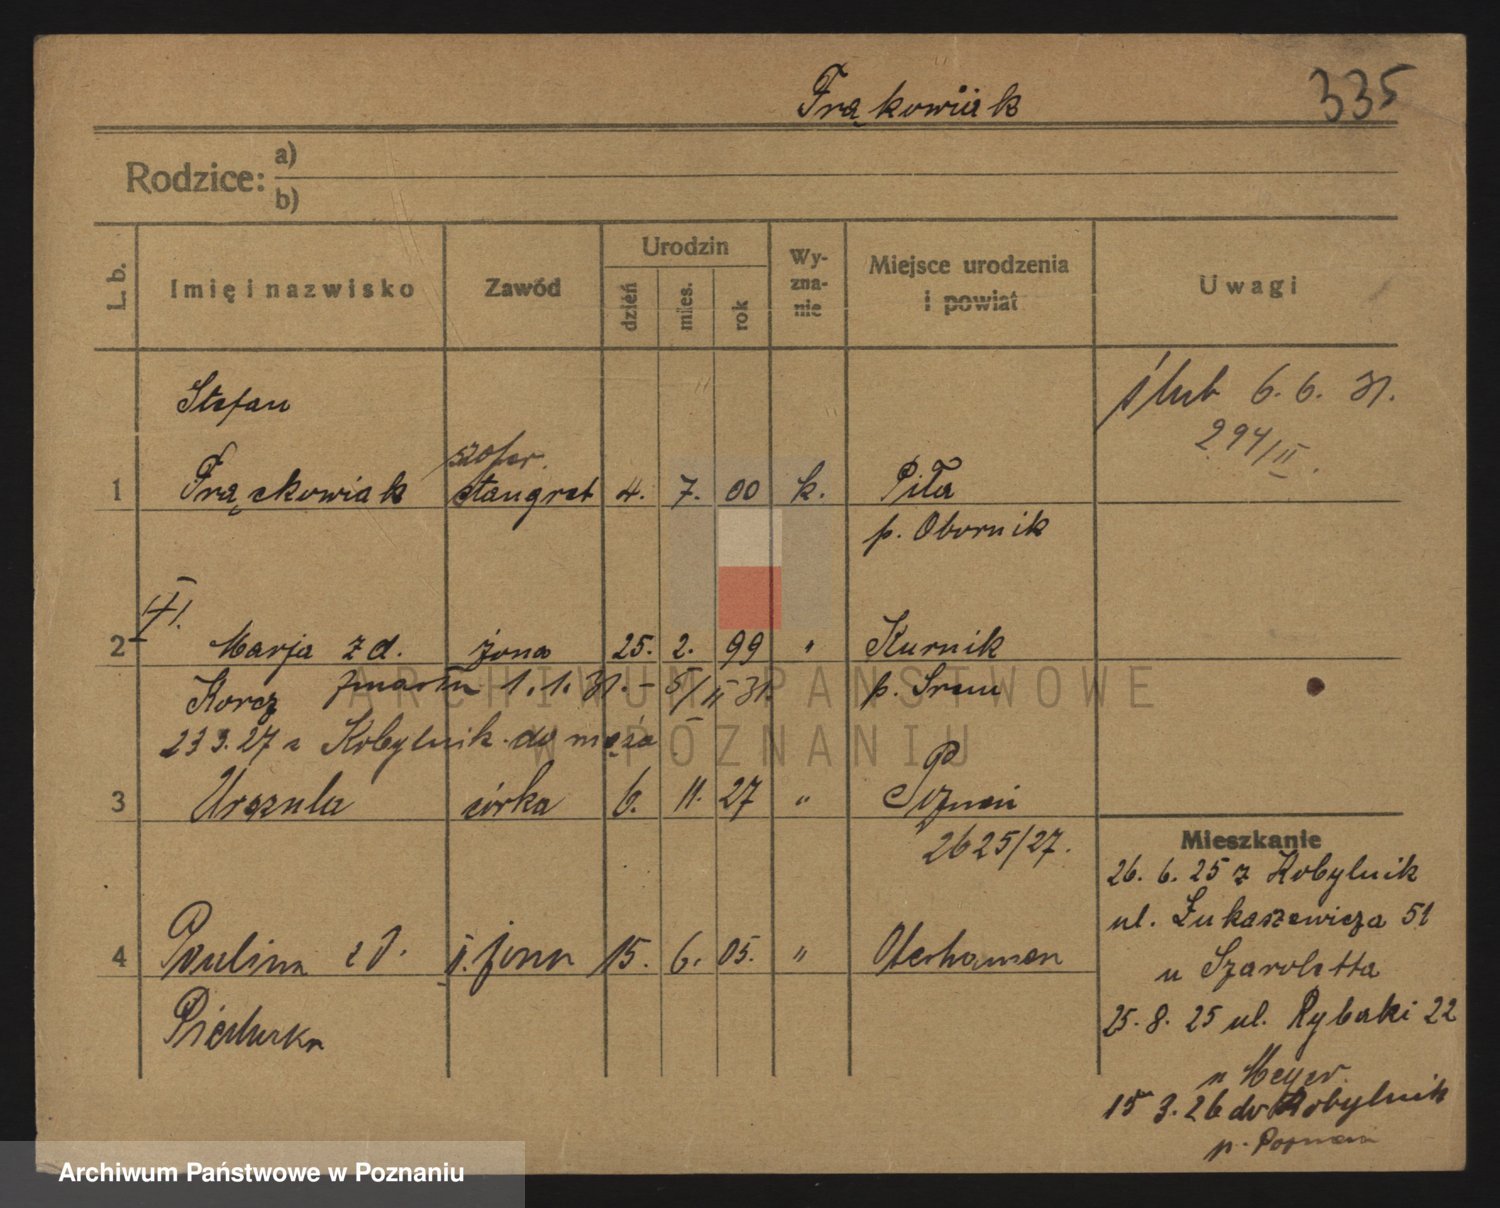 Frąckowiak
335
Rodzice: a)
b)
L. b.
Imię i nazwisko
Zawód
Urodzin
dzień
mies.
rok
Wy-
zna-
nie
Miejsce urodzenia
i powiat
Uwagi
Stefan
ślub 6. 6. 31.
294/II.
szofer.
1 Frąckowiak stangret 4. 7. 00 k. Piła
p. Obornik
II.
2 Marja z d. żona 25. 2. 99 " Kurnik
Korcz zmarła 1. 1. 31. - 5/II 31. p. Śrem
23 3. 27 z Kobylnik do męża
3 Urszula córka 6. 11. 27 " Poznań
2625/27.
Mieszkanie
26. 6. 25 z Kobylnik
ul. Łukaszewicza 51
u Szaroletta
4 Paulina z d. II. żona 15. 6. 05. "
25. 8. 25 ul. Rybaki 22
u Meyer
15 3. 26 do Kobylnik
p. Poznań
ARCHIWUM PAŃSTWOWE
W POZNANIU
Archiwum Państwowe w Poznaniu